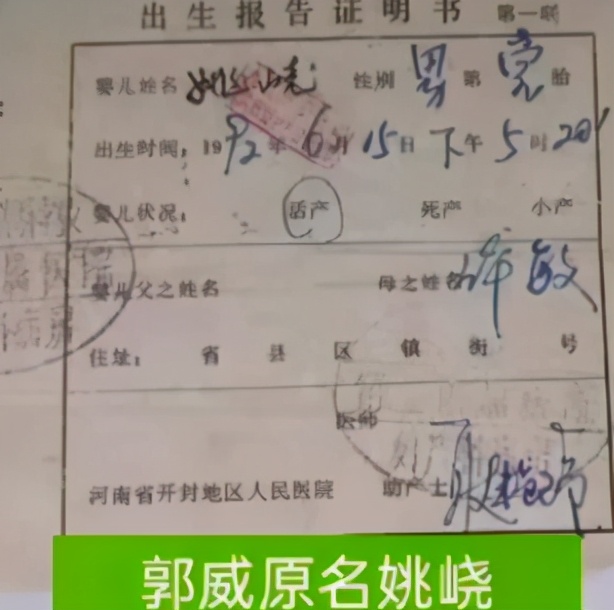 出生报告证明书 第一联
婴儿姓名 姚峣 性别 男 第 壹 胎
出生时间：1992年6月15日下午5时20
婴儿状况： 活产 死产 小产
婴儿父之姓名 母之姓名 许敏
住址： 省 县 区 镇 街 号
医师
河南省开封地区人民医院 助产士
郭威原名姚峣